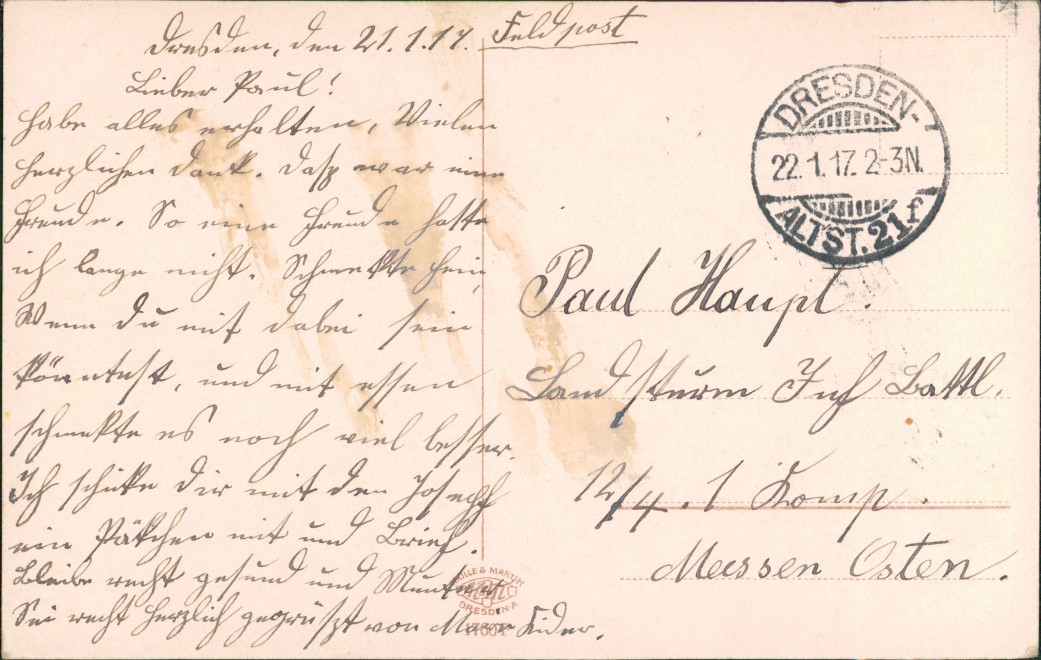 Dresden, den 21.1.17.
Lieber Paul!
Habe alles erhalten, Vielen
herzlichen Dank. Dasz war eine
Freude. So eine Freude hatte
ich lange nicht. Schmekte fein,
Wenn du mit dabei sein
könntest, und mit essen
schmekte es noch viel besser.
Ich schike Dir mit den Joseph
ein Päkchen mit und Brief.
Bleibe recht gesund und Munter
Sei recht Herzlich gegrüszt von
Feldpost
DRESDEN-
22.1.17. 2-3N.
ALTST. 21 f
Paul Haupt
Landsturm Inf Battl.
12/4. 1 Komp.
Meissen Osten.
& MARTIN
DRESDEN-A